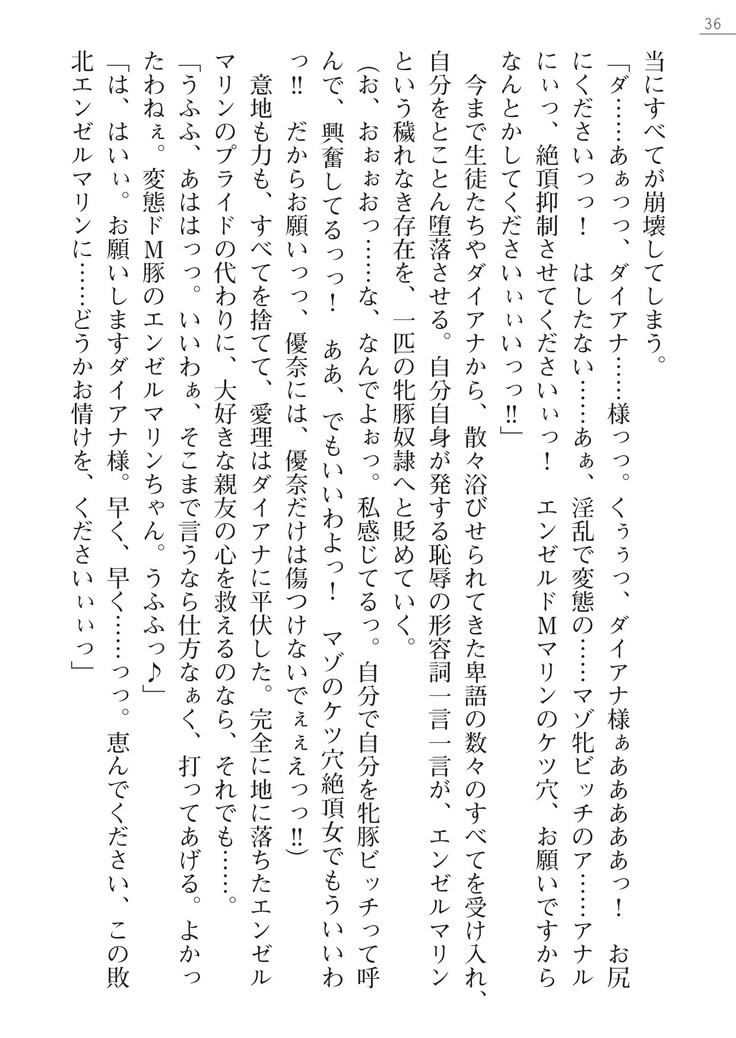 36
当にすべてが崩壊してしまう。
「ダ……あぁっっ、ダイアナ……様っっ。くぅぅっ、ダイアナ様ぁああああぁっ！　お尻
にくださいっっ！　はしたない……あぁ、淫乱で変態の……マゾ牝ビッチのア……アナル
にぃっ、絶頂抑制させてくださいぃっ！　エンゼルドMマリンのケツ穴、お願いですから
なんとかしてくださいぃぃいっっ‼」
今まで生徒たちやダイアナから、散々浴びせられてきた卑語の数々のすべてを受け入れ、
自分をとことん堕落させる。自分自身が発する恥辱の形容詞一言一言が、エンゼルマリン
という穢れなき存在を、一匹の牝豚奴隷へと貶めていく。
（お、おぉぉおっ……な、なんでよぉっ。私感じてるっ。自分で自分を牝豚ビッチって呼
んで、興奮してるっっ！　ああ、でもいいわよっ！　マゾのケツ穴絶頂女でもういいわ
っ‼　だからお願いっっ、優奈には、優奈だけは傷つけないでぇぇえっっ‼）
意地も力も、すべてを捨てて、愛理はダイアナに平伏した。完全に地に落ちたエンゼル
マリンのプライドの代わりに、大好きな親友の心を救えるのなら、それでも……。
「うふふ、あははっっ。いいわぁ、そこまで言うなら仕方なぁく、打ってあげる。よかっ
たわねぇ。変態ドM豚のエンゼルマリンちゃん。うふふっ♪」
「は、はいぃ。お願いしますダイアナ様。早く、早く……っっ。恵んでください、この敗
北エンゼルマリンに……どうかお情けを、くださいぃぃっ」